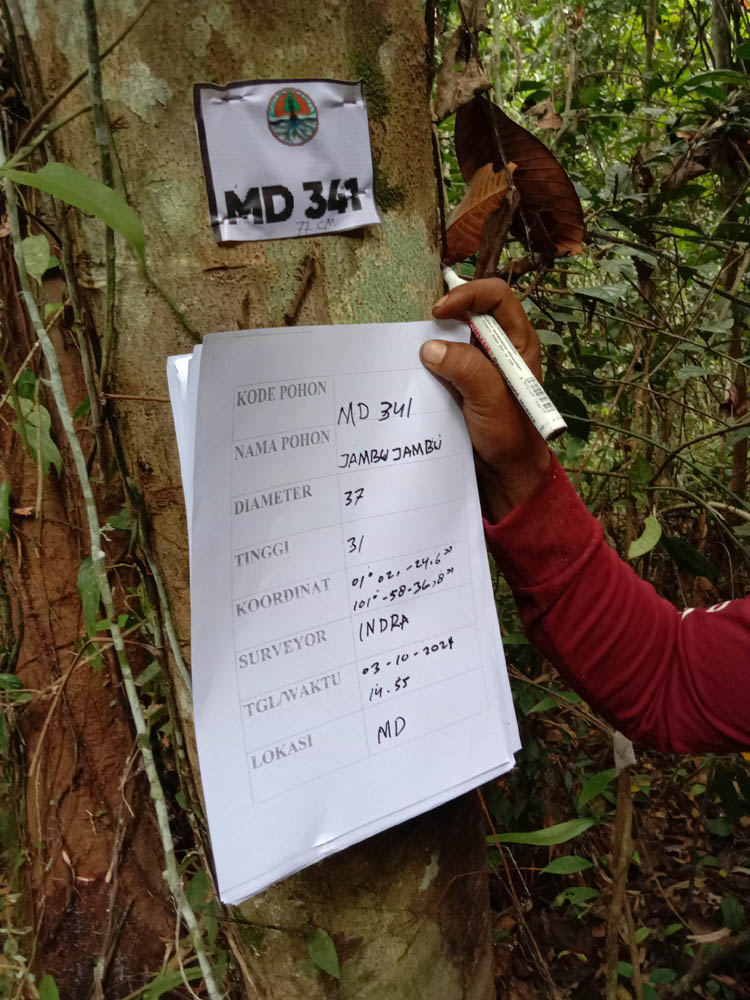 MD 341
77 CM
KODE POHON MD 341
NAMA POHON JAMBU JAMBU
DIAMETER 37
TINGGI 31
KOORDINAT 01° 02, -24,6"
101° -58-36,8"
SURVEYOR INDRA
TGL/WAKTU 03-10-2024
14.55
LOKASI MD